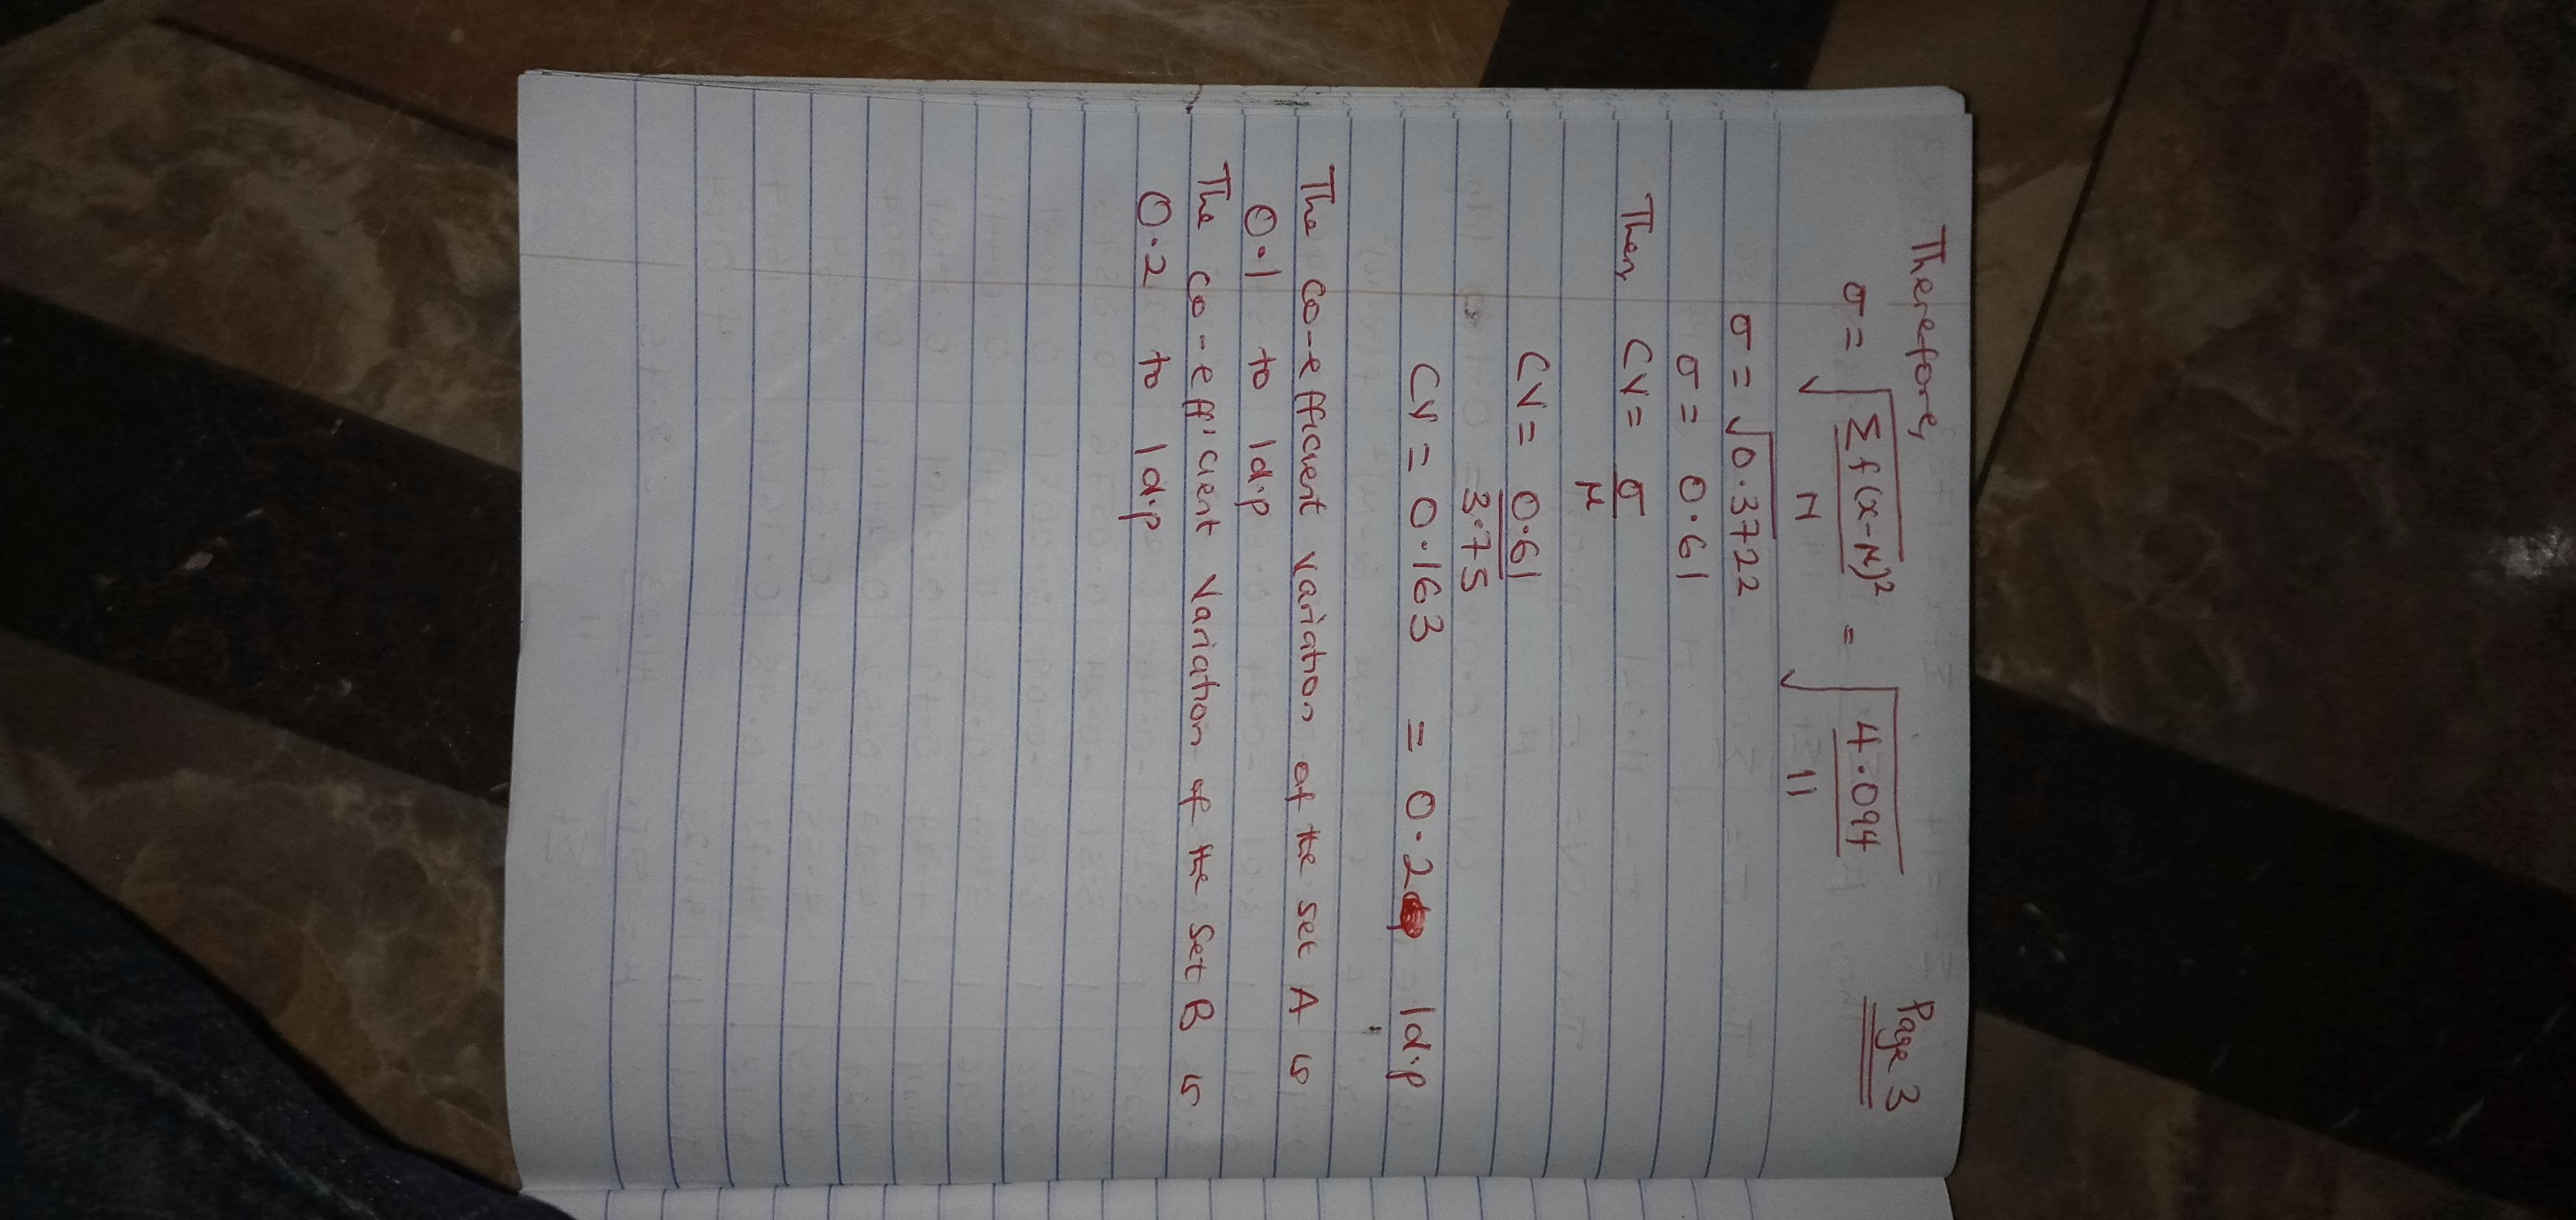 Page 3
Therefore,
σ = √Σf(x-μ)²/N = √4.094/11
σ = √0.3722
σ = 0.61
Then, CV = σ/μ
CV = 0.61/3.75
CV = 0.163 = 0.2 1d.p
The co-efficient variation of the set A is
0.1 to 1d.p
The co-efficient variation of the set B is
0.2 to 1d.p